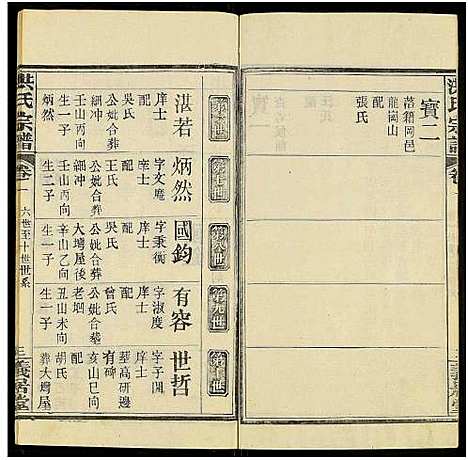 寶二
落籍岡邑
龍岡山
配
張氏
第六世
湛若
庠士
配
吳氏
公妣合葬
細冲
壬山丙向
生一子
炳然
第七世
炳然
字文蔚
庠士
配
王氏
公妣合葬
細冲
壬山丙向
生二子
第八世
國鈞
字秉衡
庠士
配
公妣合葬
大塆屋後
辛山乙向
生一子
第九世
有容
字淑度
庠士
配
曾氏
公妣合葬
老垇
丑山未向
生一子
第十世
世哲
字子開
庠士
葬高研邊
亥山巳向
有碑
配
胡氏
葬大塆屋
洪氏宗譜
卷一
六世至十世世系
三義堂